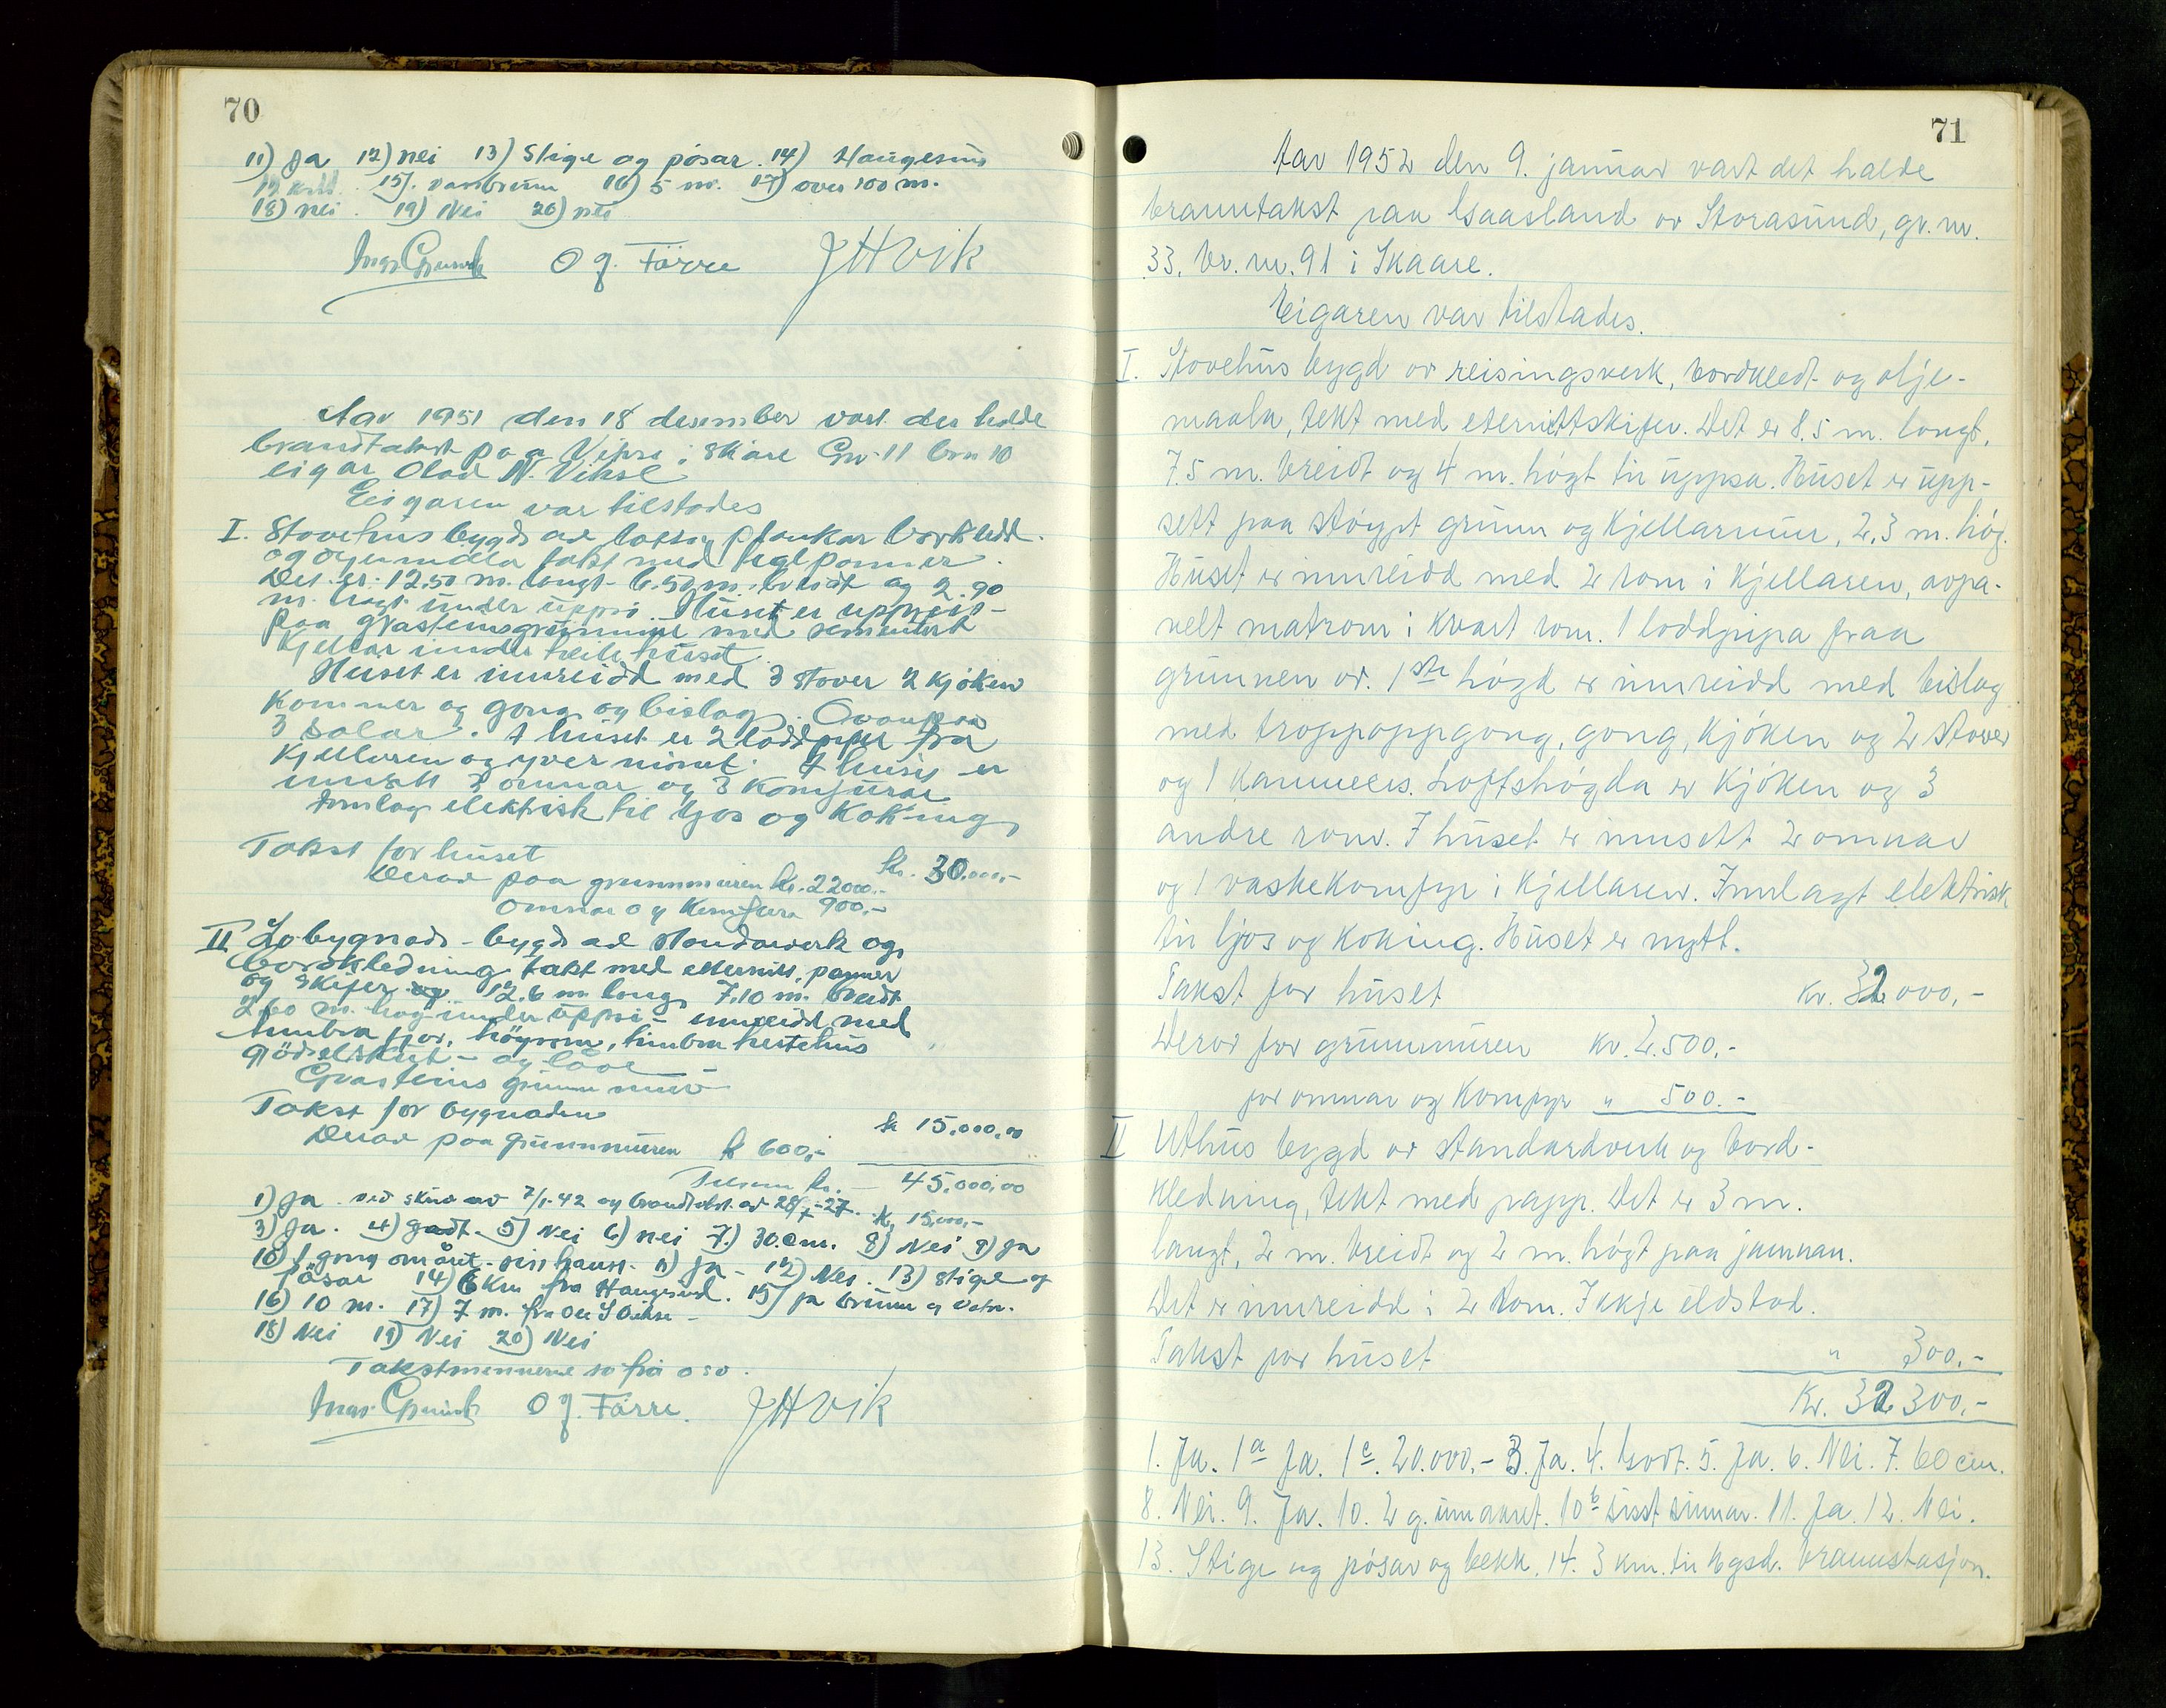 70
11) Ja 12) nei 13) Stige og pósar. 14) Haugesund
15). vassbrunn 16) 5 m. 17) over 100 m.
18) nei. 19) Nei 20) nei
O J. Förre JH Vik
Aar 1951 den 18 desember vart det halde
brandtakst paa Vikse i Skåre Gn. 11 brn 10
eigar Olav N. Vikse
Eigaren var tilstades
I. Stovehus bygd av plankar bordkledd
og oljemåla takt med teglpanner.
Det er 12.50 m. langt 6.50 m. breidt og 2.90
m. högt under uppsi. Huset er uppsett
paa gråsteinsgrunnmur med sementert
Kjellar under heile huset.
Huset er innreidd med 3 stover 2 kjöken
Kammer og gong og bislag. Ovanpaa
3 salar. I huset er 2 loddpipur fra
Kjellaren og yver mönet. I huset er
innsett 3 omnar og 3 Komfurar
Innlagt elektrisk til ljos og Koking
Takst for huset kr. 30.000,-
Derav paa grunnmuren kr. 22000.-
omnar og Komfura 900,-
II Löbygnad - bygd av standarverk og
bordkledning takt med etternitt, panner
og skifer 12.6 m. lang 7.10 m. breidt
2.60 m. hög under uppsi - innreidd med
timbra fjos, höyrom, timbra hestehus
gjödselskut - og låve
Gråsteins grunnmur
Takst for bygnaden kr 15.000,00
Derav paa grunnmuren kr 600,-
Tilsam kr. - 45.000,00
1) Ja ved skriv av 7/1-42 og brandtakst. av 28/ -27. kr. 15.000,-
3) Ja. 4) godt. 5) Nei 6) nei 7.) 30.cm. 8) Nei 9) ja
10) 1 gong om året - sist haust. 11) Ja - 12) Nei. 13) stige og
pósar 14) 6 km fra Haugesund. 15) ja brunn og vatn.
16) 10 m. 17) 7 m. fra Ole S Vikse -
18) Nei 19) Nei 20) Nei
Takstmennerne so frå oso.
O J. Förre. JH Vik
71
Aar 1952 den 9. januar vart det halde
branntakst paa Gaasland av Storasund, gr. nr.
33, br. nr. 91 i Skaare.
Eigaren var tilstades.
I. Stovehus bygd av reisingsverk, bordkledt og olje-
maala, tekt med eternittskifer. Det er 8.5 m. langt,
7.5 m. breidt og 4 m. högt til uppsa. Huset er upp-
sett paa stöypt grunn og kjellarmur, 2,3 m. hög.
Huset er innreidd med 2 rom i kjellaren, avpa-
nelt matrom i kvart rom. 1 loddpipa fraa
grunnen av. 1ste högd er innreidd med bislag
med troppoppgong, gong, kjöken og 2 stover
og 1 kammers. Loftshögda er kjöken og 3
andre rom. I huset er innsett 2 omnar
og 1 vaskekomfyr i kjellaren. Innlagt elektrisk
til ljos og koking. Huset er nytt.
Takst for huset kr. 32000,-
Derav for grunnmuren kr. 2.500.-
for omnar og komfyr " 500.-
II Uthus bygd av standardverk og bord-
kledning, tekt med papp. Det er 3 m.
langt, 2 m. breidt og 2 m. högt paa jamnan.
Det er innreidd i 2 rom. Ikkje eldstad.
Takst for huset " 300.-
Kr. 32300,-
1. Ja. 1a Ja. 1c. 20.000,- 3. Ja. 4. Godt. 5. Ja. 6. Nei. 7. 60 cm.
8. Nei. 9. Ja. 10. 2 g. um aaret. 10b sisst sumar. 11. Ja. 12. Nei.
13. Stige og pósar og bekk. 14. 3 km. til Hgsd. brannstasjon.